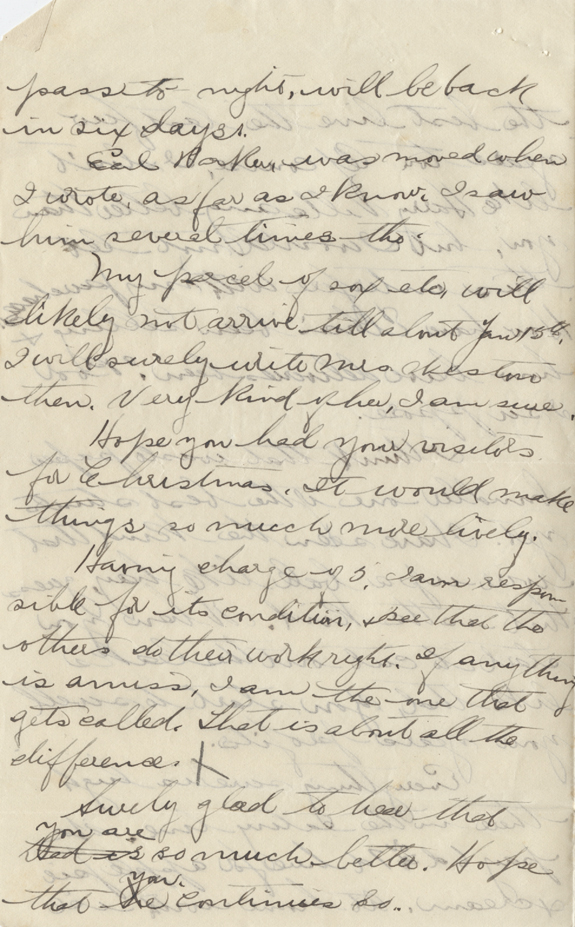 pass to night, will be back
in six days.
Cal Baker, was moved when
I wrote, as far as I know. I saw
him several times tho.
My parcel of sox etc, will
likely not arrive till about Jan 15th.
I will surely write Mrs.
then. Very kind of her, I am sure.
Hope you had your visitors
for Christmas. It would make
things so much more lively.
Having charge of 5, I am respon-
sible for its condition, & see that the
others do their work right. If anything
is amiss, I am the one that
gets called. That is about all the
difference.
Surely glad to hear that
you are
Dad is so much better. Hope
you
that he continues so.